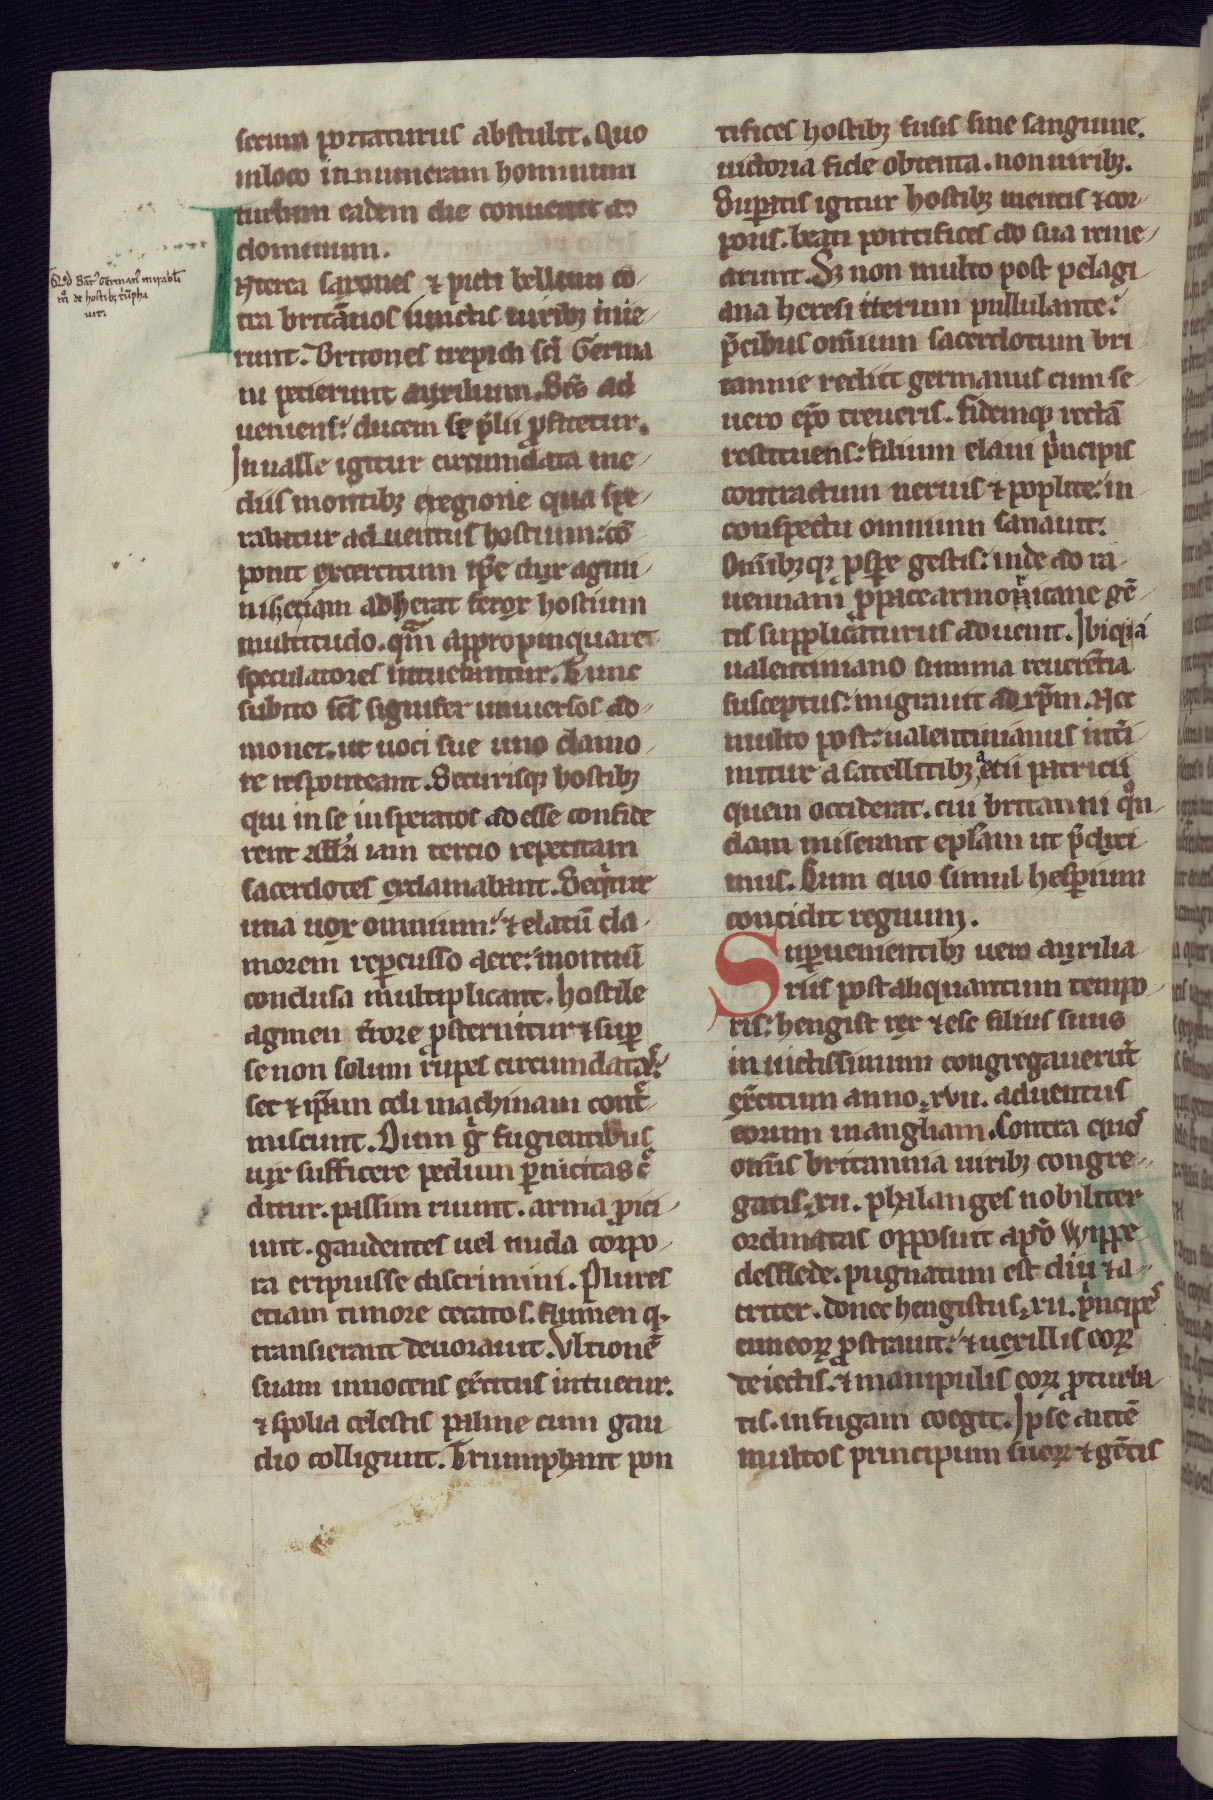 secum portaturus abstulit. Quo
in loco innumeram hominum
turbam eadem die conuertit ad
dominum.
INterea saxones ⁊ picti bellum cō
tra britānios iunctis uiribꝫ inie
runt. Britones trepidi sc̄i Germa
ni petierunt auxilium. Ses̄ ad
ueniens: ducem se p̄lii ꝓfitetur.
In ualle igitur circumdata me
diis montibꝫ e regione qua spe
rabatur aduentus hostium: cō
ponit exercitum ip̄e dux agmi
nis. Et iam adherat ferox hostium
multitudo. qm̄ appropinquare
speculatores intuebantur. Tunc
subito sc̄s signifer uniuersos ad
monet. ut uoci sue uno clamo
re respondeant. Securisqꝫ hostibꝫ
qui in se insperatos adesse confide
rent all̄a iam tercio repetitam
sacerdotes exclamabant. Sequitur
una uox omnium: ⁊ elatū cla
morem repercusso aere: montiū
conclusa multiplicant. hostile
agmen t̄rore ꝓsternitur ⁊ sup̄
se non solum rupes circumdatas:
set ⁊ ip̄am celi machinam cont̄
miscunt. Dum gͥ fugientibus
uix sufficere pedum ꝑnicitas c̄
ditur. passim ruunt. arma ꝓici
unt. gaudentes uel nuda corpo
ra eripuisse discrimini. Plures
etiam timore cecatos. flumen qͦ
transierant deuorauit. Vltionē
suam innocens ex̄citus intuetur.
⁊ spolia celestis palme cum gau
dio colligunt. Triumphant pon
Qͦd Bāt᷒ Germanꝰ mirabil̄
m̄ de hostibꝫ t͛umpha
uit.
tifices hostibꝫ fusis sine sanguine.
uictoria fide obtenta. non uiribꝫ.
Supatis igitur hostibꝫ mentis ⁊ cor
poris. beati pontifices ad sua reme
arunt. Sꝫ non multo post pelagi
ana heresi iterum pullulante:
p̄cibus om̄ium sacerdotum bri
tannie rediit germanus cum se
uero ep̄o treueris. fidemqꝫ rectā
restituens: filium elaui p̄ncipis
contractum neruis ⁊ poplite: in
conspectu omnium sanauit.
Omībꝫqꝫ ꝓspe gestis: inde ad ra
uennam ꝓ pace armoricane gē
tis supplicaturus aduenit. Ibiqꝫ a
ualentiniano summa reuerētia
susceptus: migrauit ad xp̄m. Nec
multo post: ualentinianus int̄i
mitur a satellitibꝫ etii patricii
quem occiderat. cui britanni qͦn
dam miserant epl̄am ut p̄dixi
mus. Cum quo simul hesperium
concidit regnum.
Superuenientibꝫ uero auxilia
riis post aliquantum tempo
ris: hengist rex ⁊ esc filius suus
inuictissimum congregauerūt
ex̄citum anno .xvii. aduentus
eorum in angliam. Contra quos
om̄is britannia uiribꝫ congre
gatis .xii. phalanges nobiliter
ordinatas opposuit apud Wippe
desflede. pugnatum est diu ⁊ a
criter. donec hengistus .xii. p̄ncipes
cuneoꝝ ꝓstrauit: ⁊ uexillis eoꝝ
deiectis. ⁊ manipulis eoꝝ ꝑturba
tis. in fugam coegit. Ipse autē
multos principum suoꝝ ⁊ gētis